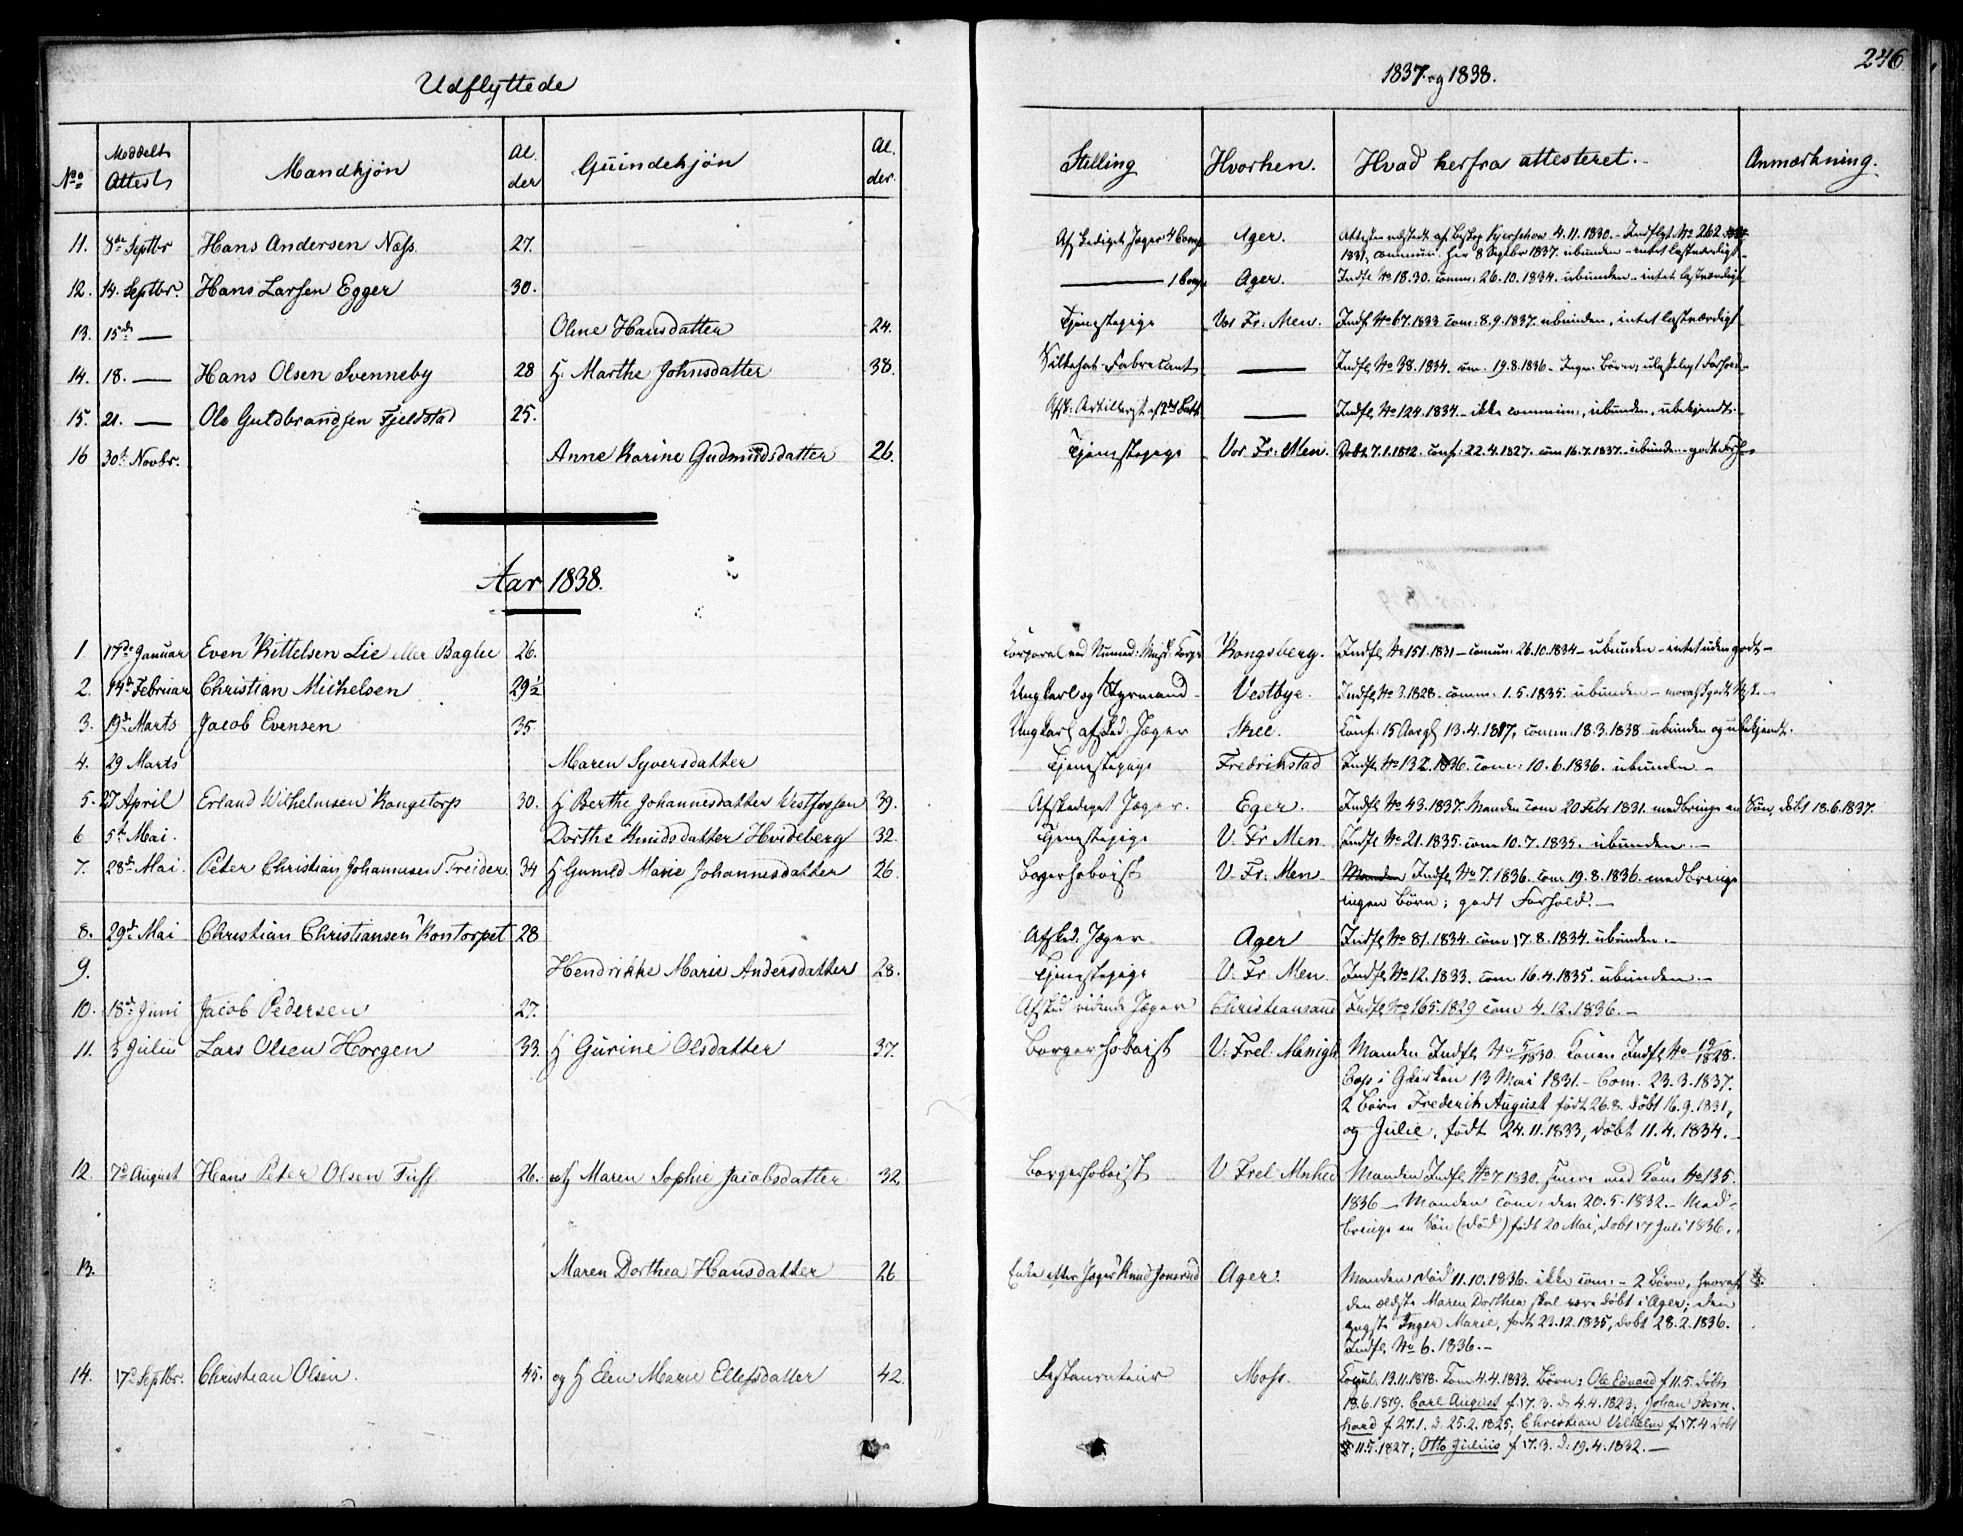 246
Udflyttede
1837 og 1838.
No Meddelt Attest Mandkjön Alder Quindekjön Alder Stilling Hvorhen. Hvad herfra attesteret. Anmærkning.
11. 8de Septbr Hans Andersen Næss 27. Ager. 4.11.1830. - Indflyt. No 262
1831, commun. her 8 Septbr 1837. ubunden - intet lastværdigt
12. 14. Septbr. Hans Larsen Egger 30. — 1 Comp Ager. Indfl. No 18.30. comm: 26.10.1834. ubunden - intet lastværdigt
13. 15de — Oline Hansdatter 24. Tjenestepige Vor Fr: Men. Indf. No 67.1833 com. 8.9.1837. ubunden, intet lastværdigt
14. 18. — Hans Olsen Svenneby 28 H. Marthe Johnsdatter 38. Silkehat Fabrecant — Indfl. No 38.1834. com. 19.8.1836 - Ingen Börn; ulasteligt Forhold
15. 21. — Ole Guldbrandsen Fjeldstad 25. — Indfl. No 124.1834 - ikke commun:, ubunden, ubekjendt.
16 30te Novbr. Anne Karine Gudmudsdatter 26. Tjenestepige Vor. Fr: Men. Födt 7.1.1812. conf: 22.4.1827. com 16.7.1837. ubunden - godt Forh
Aar 1838.
1. 17de Januar Even Kittelsen Lie eller Baglie 26. Kongsberg. Indfl. No 151.1831 - comun: 26.10.1834 - ubunden - intet uden godt -
2. 14de Februar Christian Michelsen 29½ Ungkarl og Styrmand Vestbye. Indfl. No 3.1828. comm: 1.5.1835. ubunden -
3. 19de Marts Jacob Evensen 35. Ungkarl afsked: Jæger Skee. Conf: 15 Aar gl. 13.4.1817, comm: 18.3.1838 ubunden og ubekjendt.
4. 29 Marts Maren Syversdatter Tjenestepige Fredrikstad Indfl. No 132.1836. com: 10.6.1836. ubunden -
5. 27 April Erland Wilhelmsen Kongstorp 30. H Berthe Johannesdatter Westfossen 39. Afskediget Jæger. Eger. Indfl. No 43.1837. Manden com 20 Febr 1831. medbringe en Sön, döbt 18.6.1837.
6 5te Mai. Dorthe Knudsdatter Hvideberg 32. Tjenestepige V. Fr Men Indfl No 21.1835. com 10.7.1835. ubunden. -
7. 28de Mai. Peter Christian Johannesen Treider 34 H Gunild Marie Johannesdatter 26. Borgerhoboist V. Fr: Men. Manden Indfl. No 7.1836. com 19.8.1836. medbringe
ingen Börn; godt Forhold. -
8. 29de Mai Christian Christiansen Kontorpet 28 Afsked. Jæger. Ager Indfl. No 81.1834. com 17.8.1834. ubunden. -
9. Hendrikke Marie Andersdatter 28. Tjenestepige V. Fr. Men. Indfl. No 12.1833. com 16.4.1835. ubunden -
10. 18de Juni Jacob Pedersen 27. Afsked ridende Jæger Christiansand Indfl. No 165.1829 com 4.12.1836. -
11. 3 Julii Lars Olsen Horgen 33. H Gurine Olsdatter 37. Borgerhoboist V. Frel. Menigh. Manden Indfl. No 5/1830. Konen Indfl. No 19/1828.
Cop. i G.kirken 13 Mai 1831. - Com. 23.3.1837.
2 Börn Frederik August födt 26.8. döbt 16.9.1831,
og Julie, födt 24.11.1833, döbt 11.4.1834. -
12. 7de August Hans Peter Olsen Tuff 26. og H Maren Sophie Jacobsdatter 32 Borgerhoboist V Frel Mnhed Manden Indfl. No 7 1830. med Kone No 135.
1836 - Manden com: den 20.5.1832. - Med-
bringe en Sön (död) födt 20 Mai, döbt 17 Juli 1836.
13. Maren Dorthea Hansdatter 26 Enke efter Jæger Knud Ager. Manden död 11.10.1836. ikke com: - 2 Börn, hvoraf
den ældste Maren Dorthea skal være döbt i Ager; den
yngste Inger Marie, födt 23.12.1835, döbt 28.2.1836.
Indfl. No 6.1836. -
14. 17de Septbr. Christian Olsen. 45. og H Elen Marie Ellefsdatter 42. Restaurateur Moss. Copul. 13.11.1818. Com 4.4.1833. Börn: Ole Edvard f 11.5. döbt
18.6.1819. Carl August f. 17.3. d. 4.4.1823; Johan Bern-
hard f 27.1. d. 25.2.1825; Christian Vilhelm f. 17.4 döbt
11.5.1827; Otto Julius f 17.3. d. 19.4.1832. -